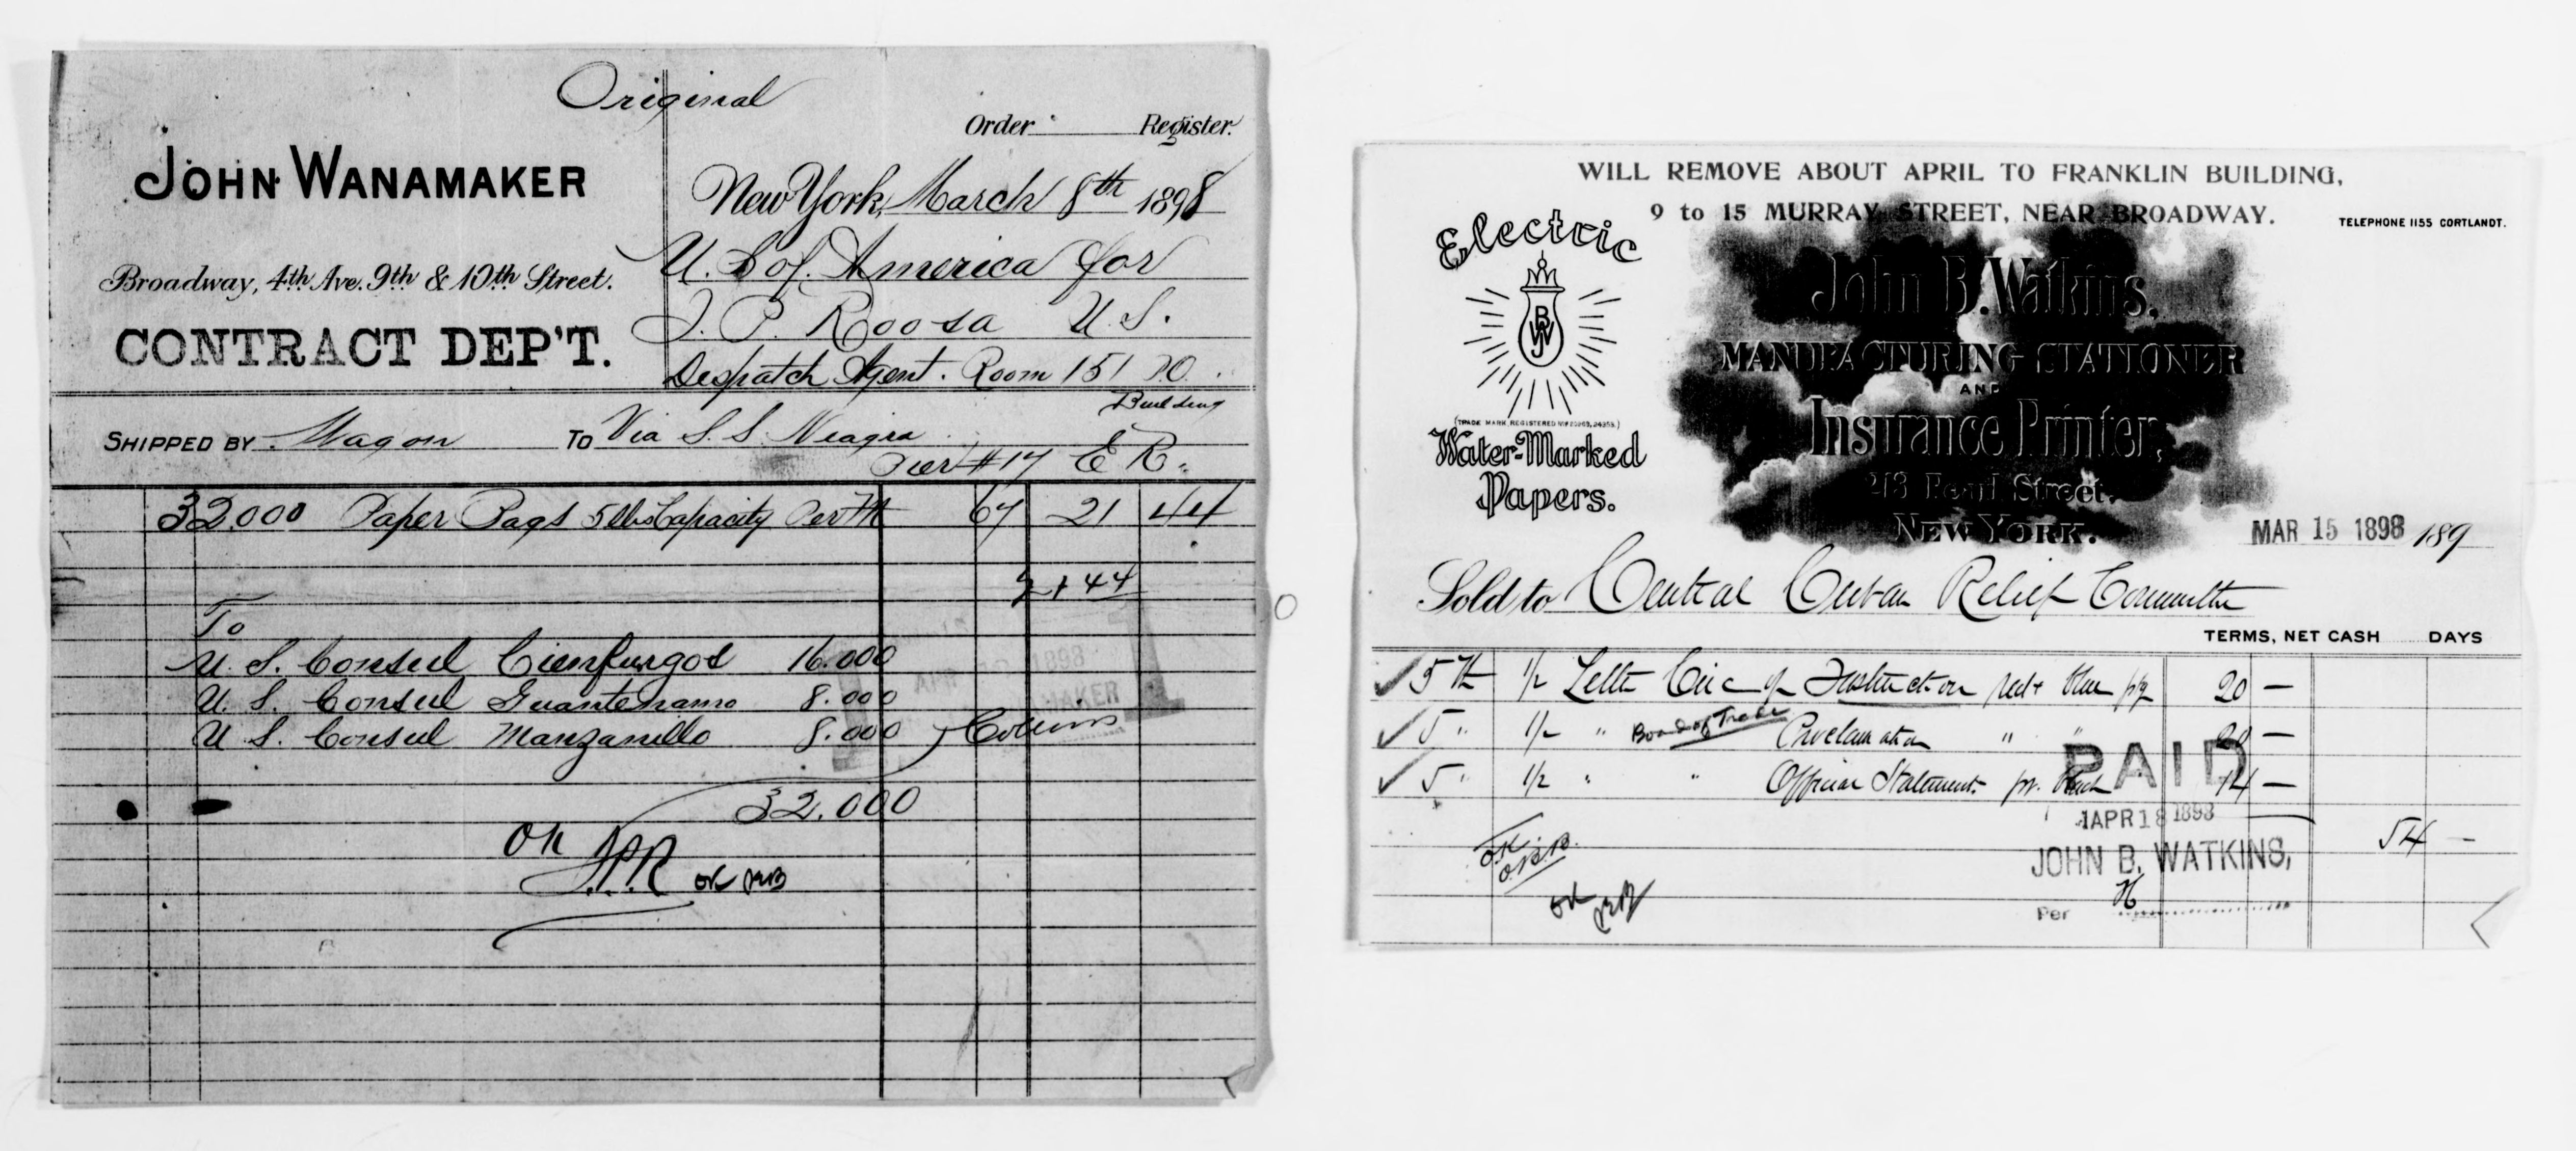 Original
Order Register.
JOHN WANAMAKER
New York, March 8th 1898
Broadway, 4th Ave. 9th & 10th Street.
U. S of. America for
I. P. Roosa U. S.
CONTRACT DEP'T.
Despatch Agent. Room 151 P.O.
Building
SHIPPED BY Wagon To Via S. S. Niagra
Pier #17 E R.
32,000 Paper Bags 5 lbs Capacity Per M 67 21 44
21 44
To
U. S. Consul Cienfurgos 16.000
U. S. Consul Guantenamo 8.000
U. S. Consul Manzanillo 8.000
APR 1898
MAKER
32.000
OK I.P.R OK
WILL REMOVE ABOUT APRIL TO FRANKLIN BUILDING,
9 to 15 MURRAY STREET, NEAR BROADWAY.
TELEPHONE 1155 CORTLANDT.
Electric
BWJ
(TRADE MARK, REGISTERED
Water-Marked
Papers.
John B. Watkins,
MANUFACTURING STATIONER
AND
Insurance Printer,
213 Pearl Street,
NEW YORK.
MAR 15 1898 189
Sold to Central Cuban Relief Committee
TERMS, NET CASH DAYS
5 M 1/2 Letter Circ of Instruction red + blue 20 —
5 " 1/2 " Board of Trade Proclamation " " 20 —
5 " 1/2 " " Official Statement 14 —
54 —
PAID
APR 18 1898
JOHN B. WATKINS,
Per H
OK
OK